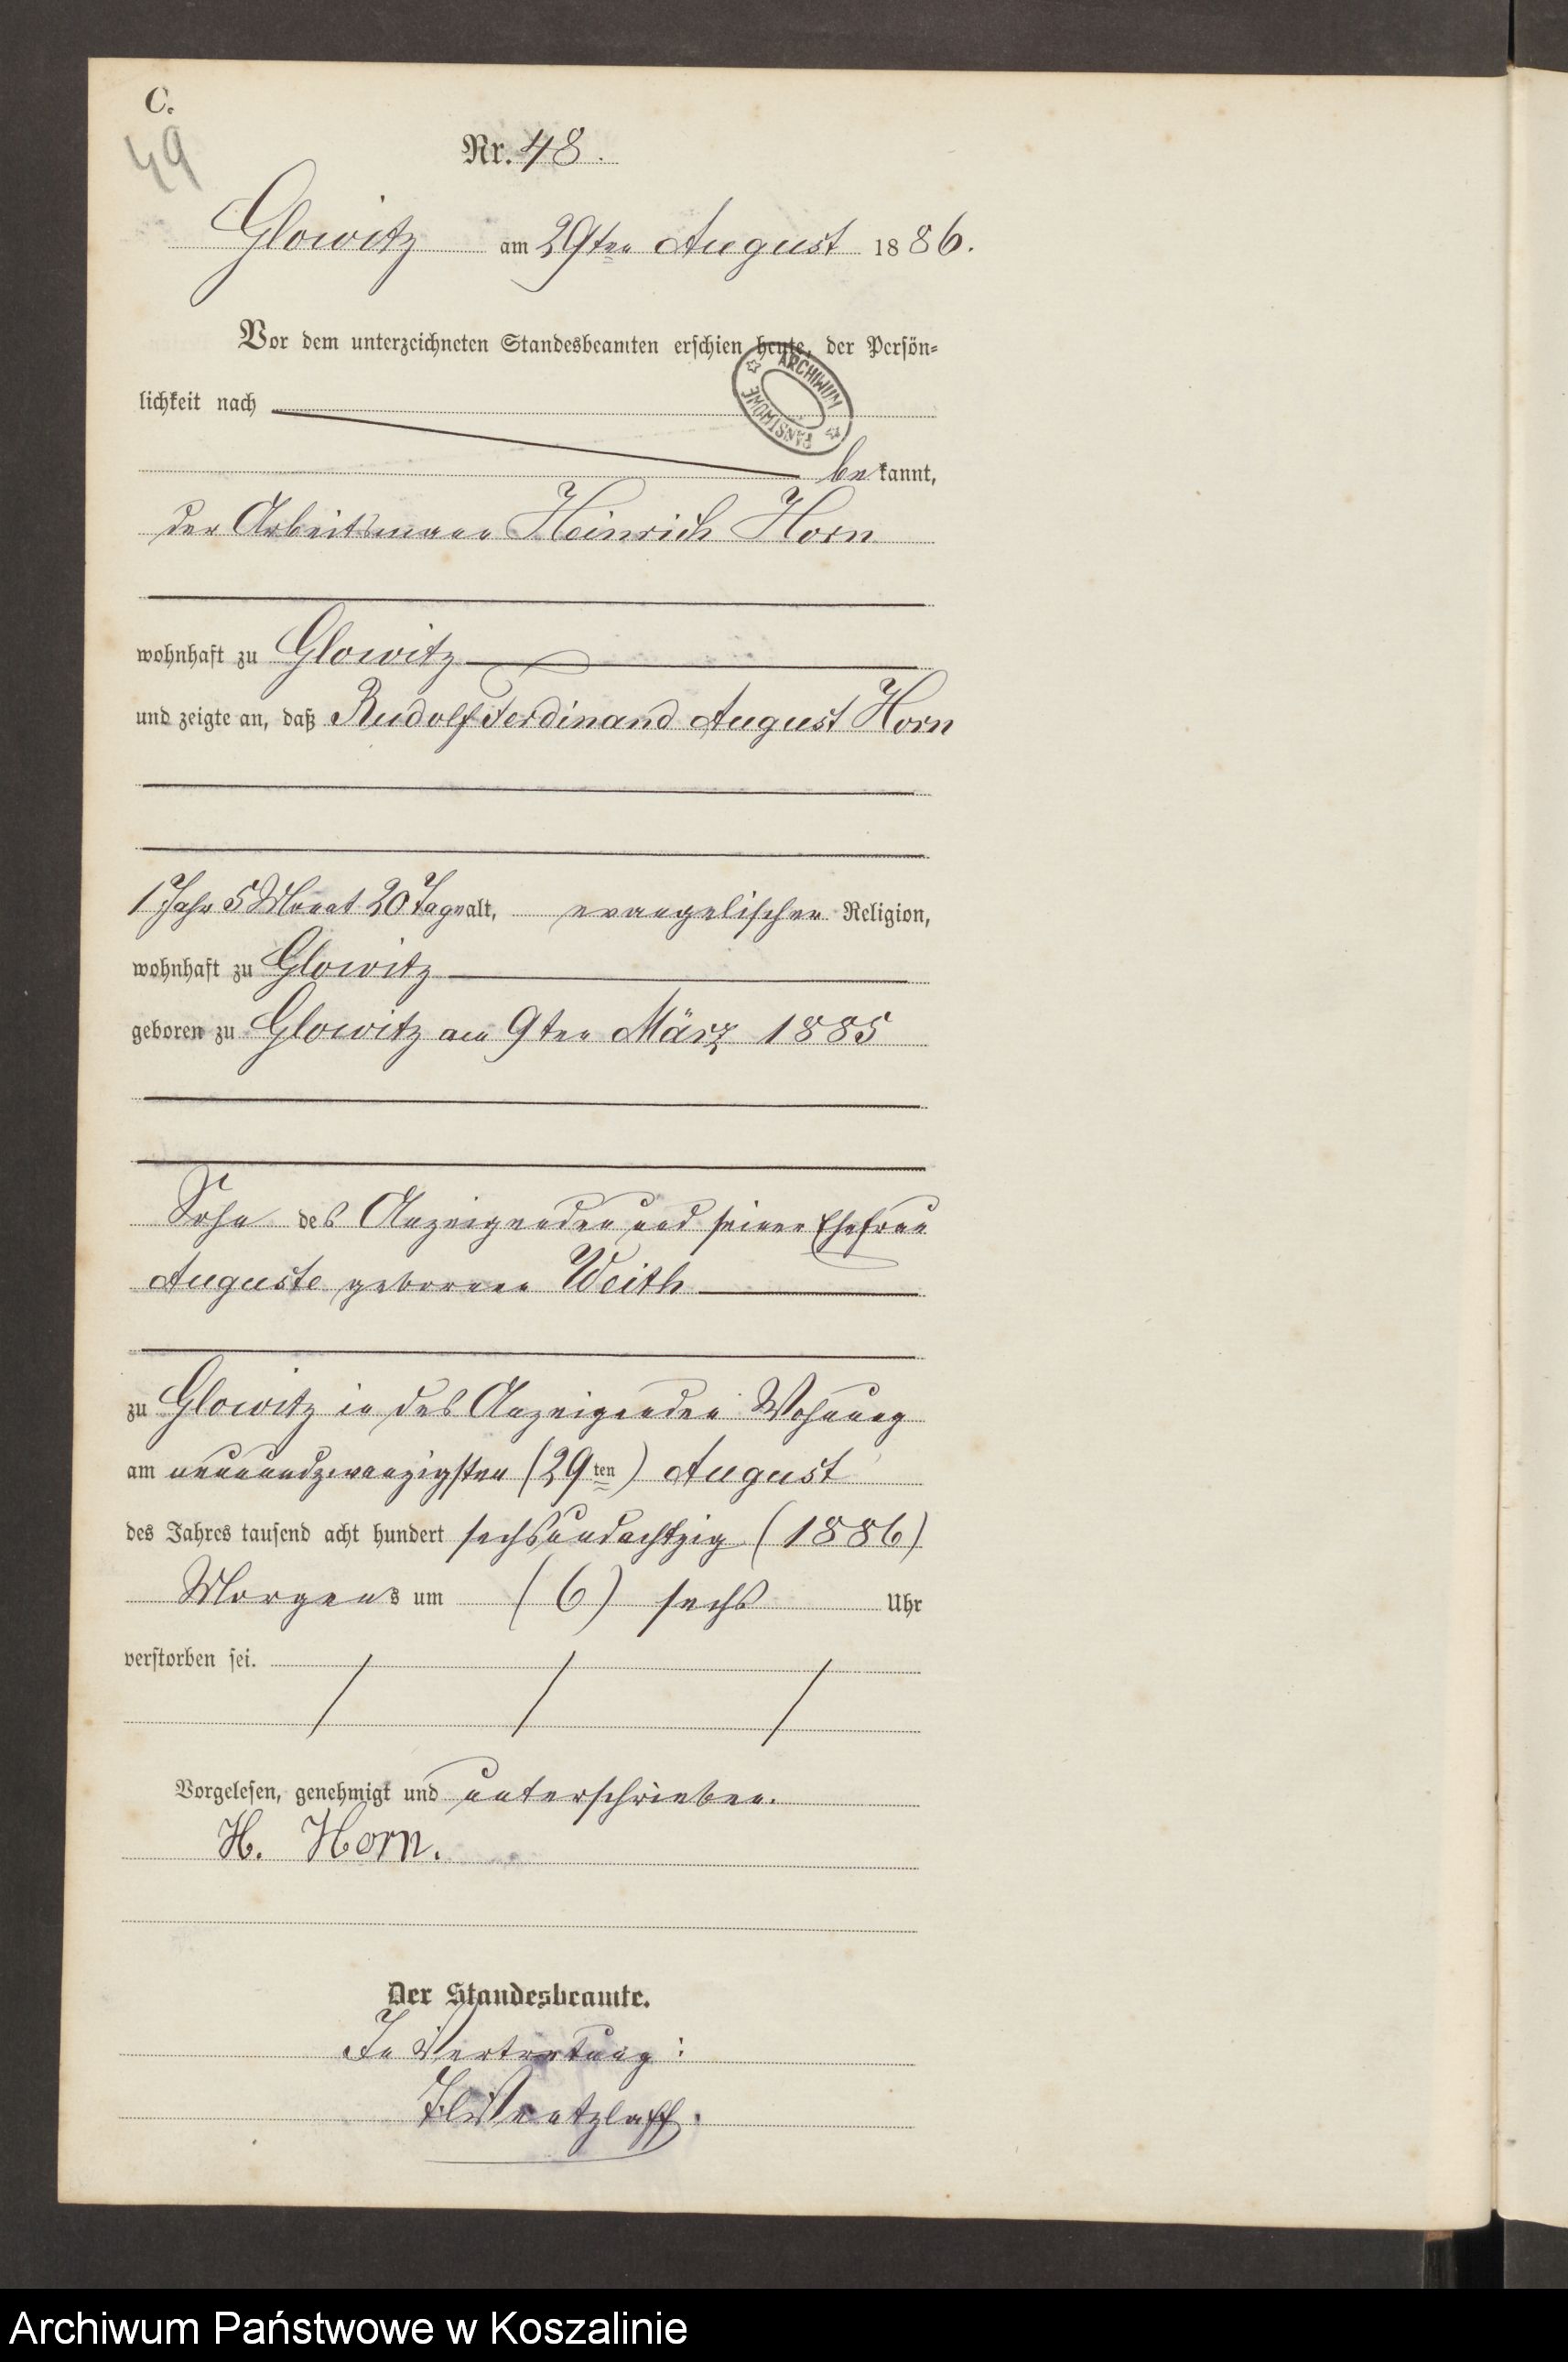 C.
49
Nr. 48.
Glowitz am 29ten August 1886.
Vor dem unterzeichneten Standesbeamten erschien heute, der Persön-
ARCHIWUM PAŃSTWOWE
lichkeit nach
bekannt,
der Arbeitsmann Heinrich Horn
wohnhaft zu Glowitz
und zeigte an, daß Rudolf Ferdinand August Horn
1 Jahr 5 Monat 20 Tage alt, evangelischer Religion,
wohnhaft zu Glowitz
geboren zu Glowitz am 9ten März 1885
Sohn des Anzeigenden und seiner Ehefrau
Auguste geborenen Weith
zu Glowitz in des Anzeigenden Wohnung
am neunundzwanzigsten (29ten) August
des Jahres tausend acht hundert sechsundachtzig (1886)
Morgens um (6) sechs Uhr
verstorben sei.
Vorgelesen, genehmigt und unterschrieben.
H. Horn.
Der Standesbeamte.
In Vertretung:
Archiwum Państwowe w Koszalinie